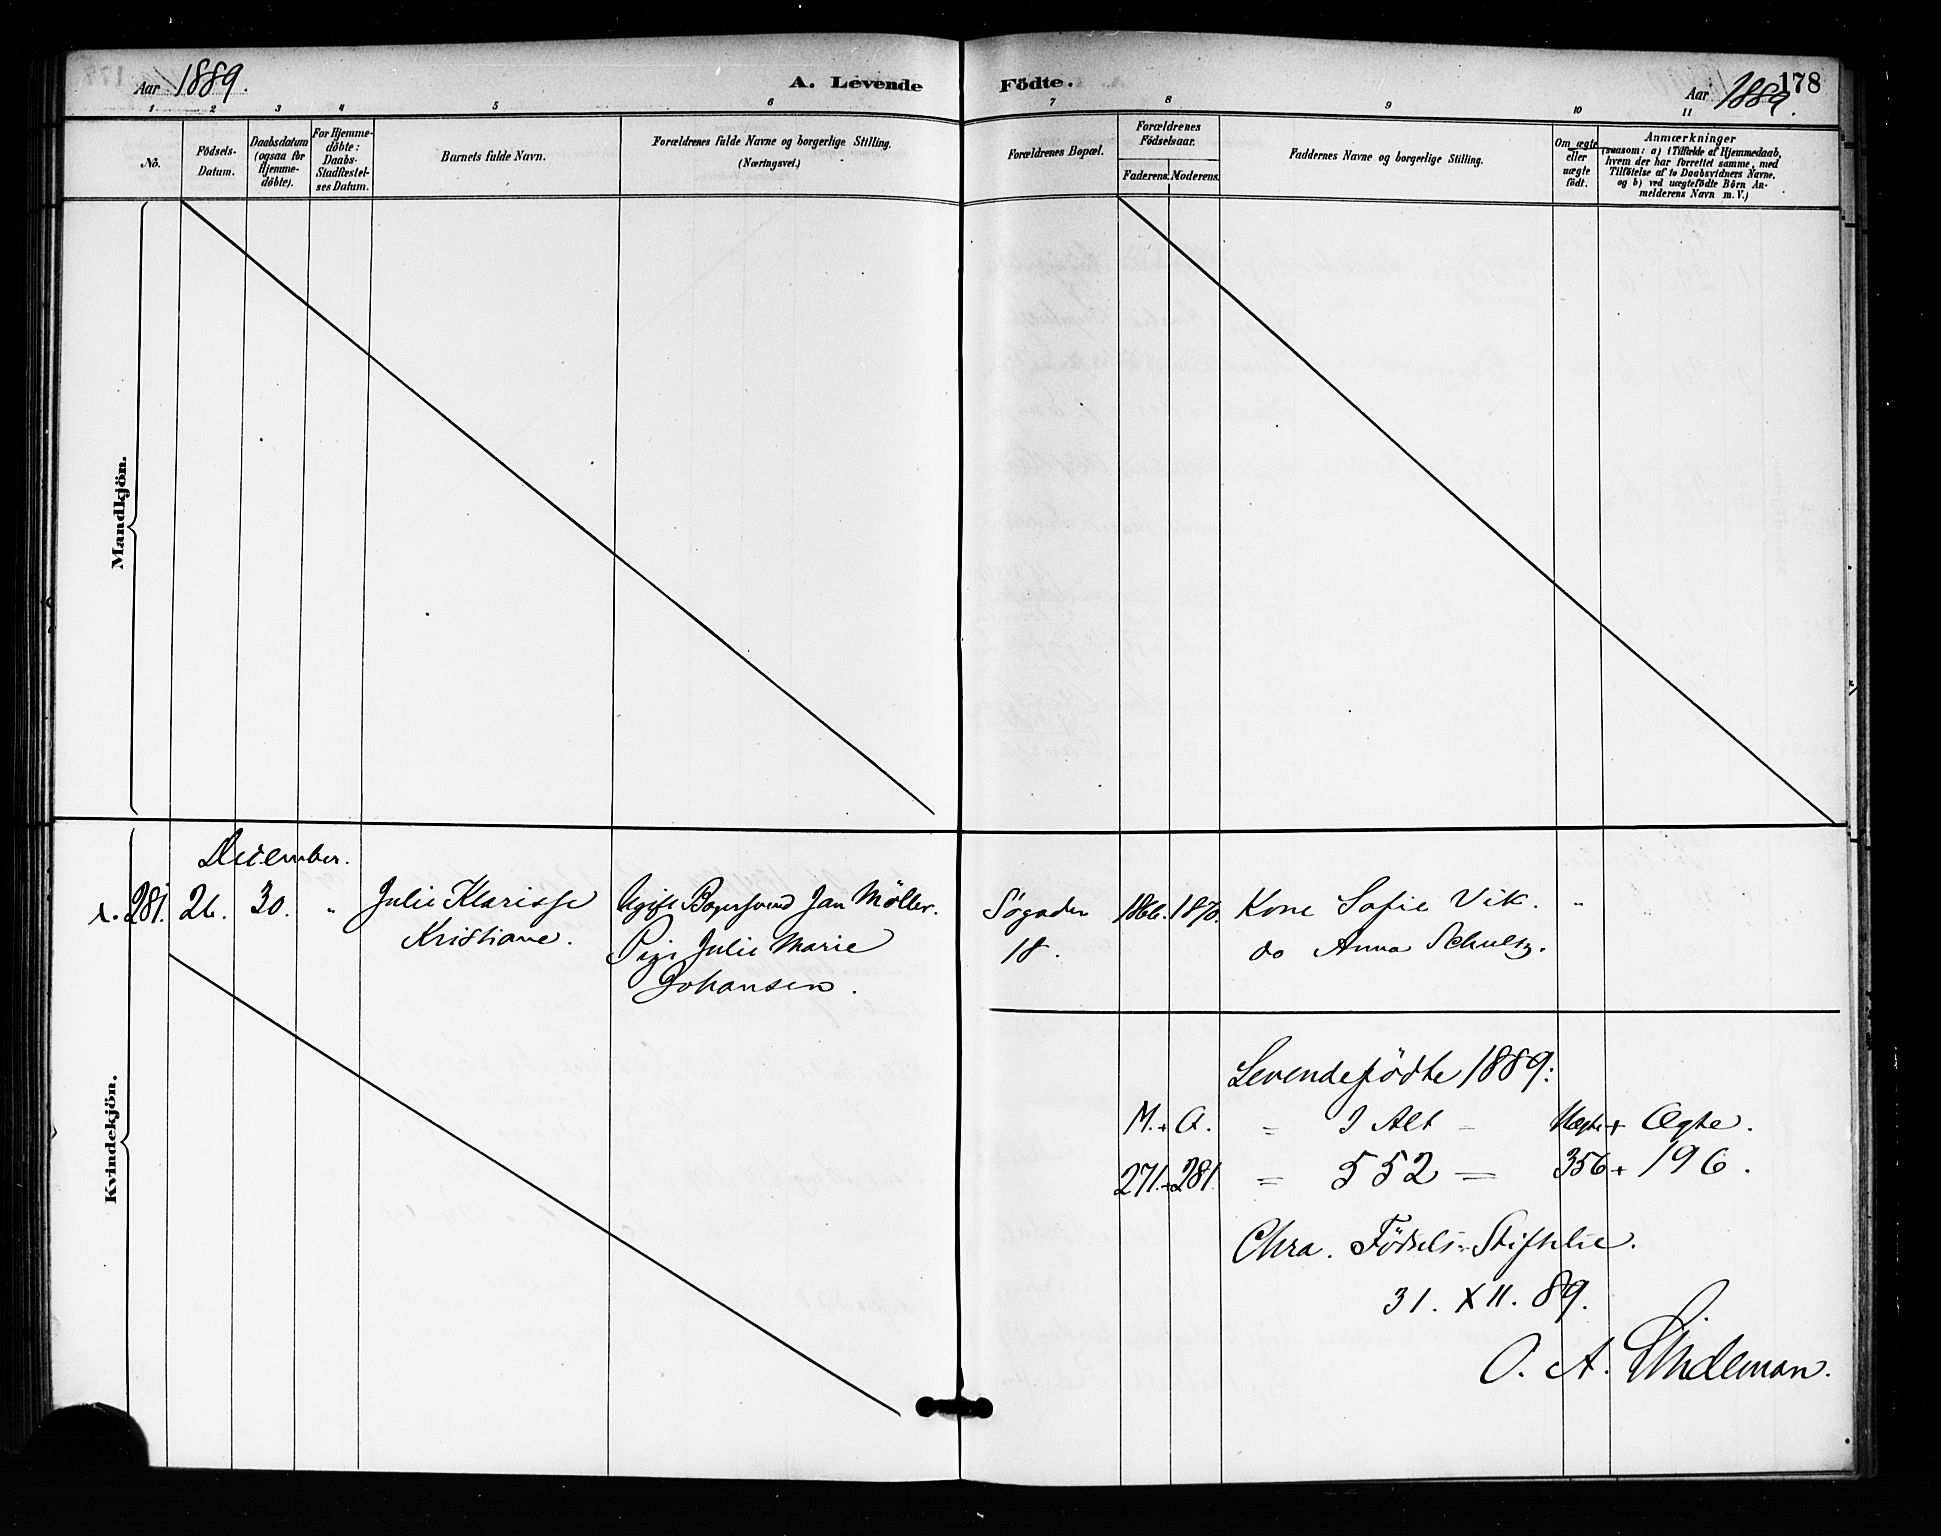 Aar 1889.
A. Levende
1 2 3 4 5 6
No.
Födsels-
Datum.
Daabsdatum
(ogsaa for
Hjemme-
döbte).
For Hjemme-
döbte:
Daabs-
Stadfæstel-
ses Datum.
Barnets fulde Navn.
Forældrenes fulde Navne og borgerlige Stilling.
(Næringsvei.)
Mandkjön.
December.
281. 26. 30. "
Julie Klarisse
Kristiane.
Ugift Jan Möller.
Pige Julie Marie
Johansen.
Kvindekjön.
Födte.
Aar 1889.
178
7 8 9 10 11
Forældrenes Bopæl.
Forældrenes
Födselsaar.
Faderens. Moderens.
Faddernes Navne og borgerlige Stilling.
Om ægte
eller
uægte
födt.
Anmærkninger
(saasom: a) i Tilfælde af Hjemmedaab,
hvem der har forrettet samme, med
Tilföielse af to Daabsvidners Navne,
og b) ved uægtefödte Börn An-
melderens Navn m. V.)
Søgaden
18.
1866. 1870.
Kone Sofie Vik. "
do Anna Schultz.
Levendefödte 1889:
M. + Q. = I Alt = Uægte + Ægte.
271. + 281. = 552 = 356 + 196.
Chra. Födsels-Stiftelse.
31. XII. 89.
O. A. Lindeman.